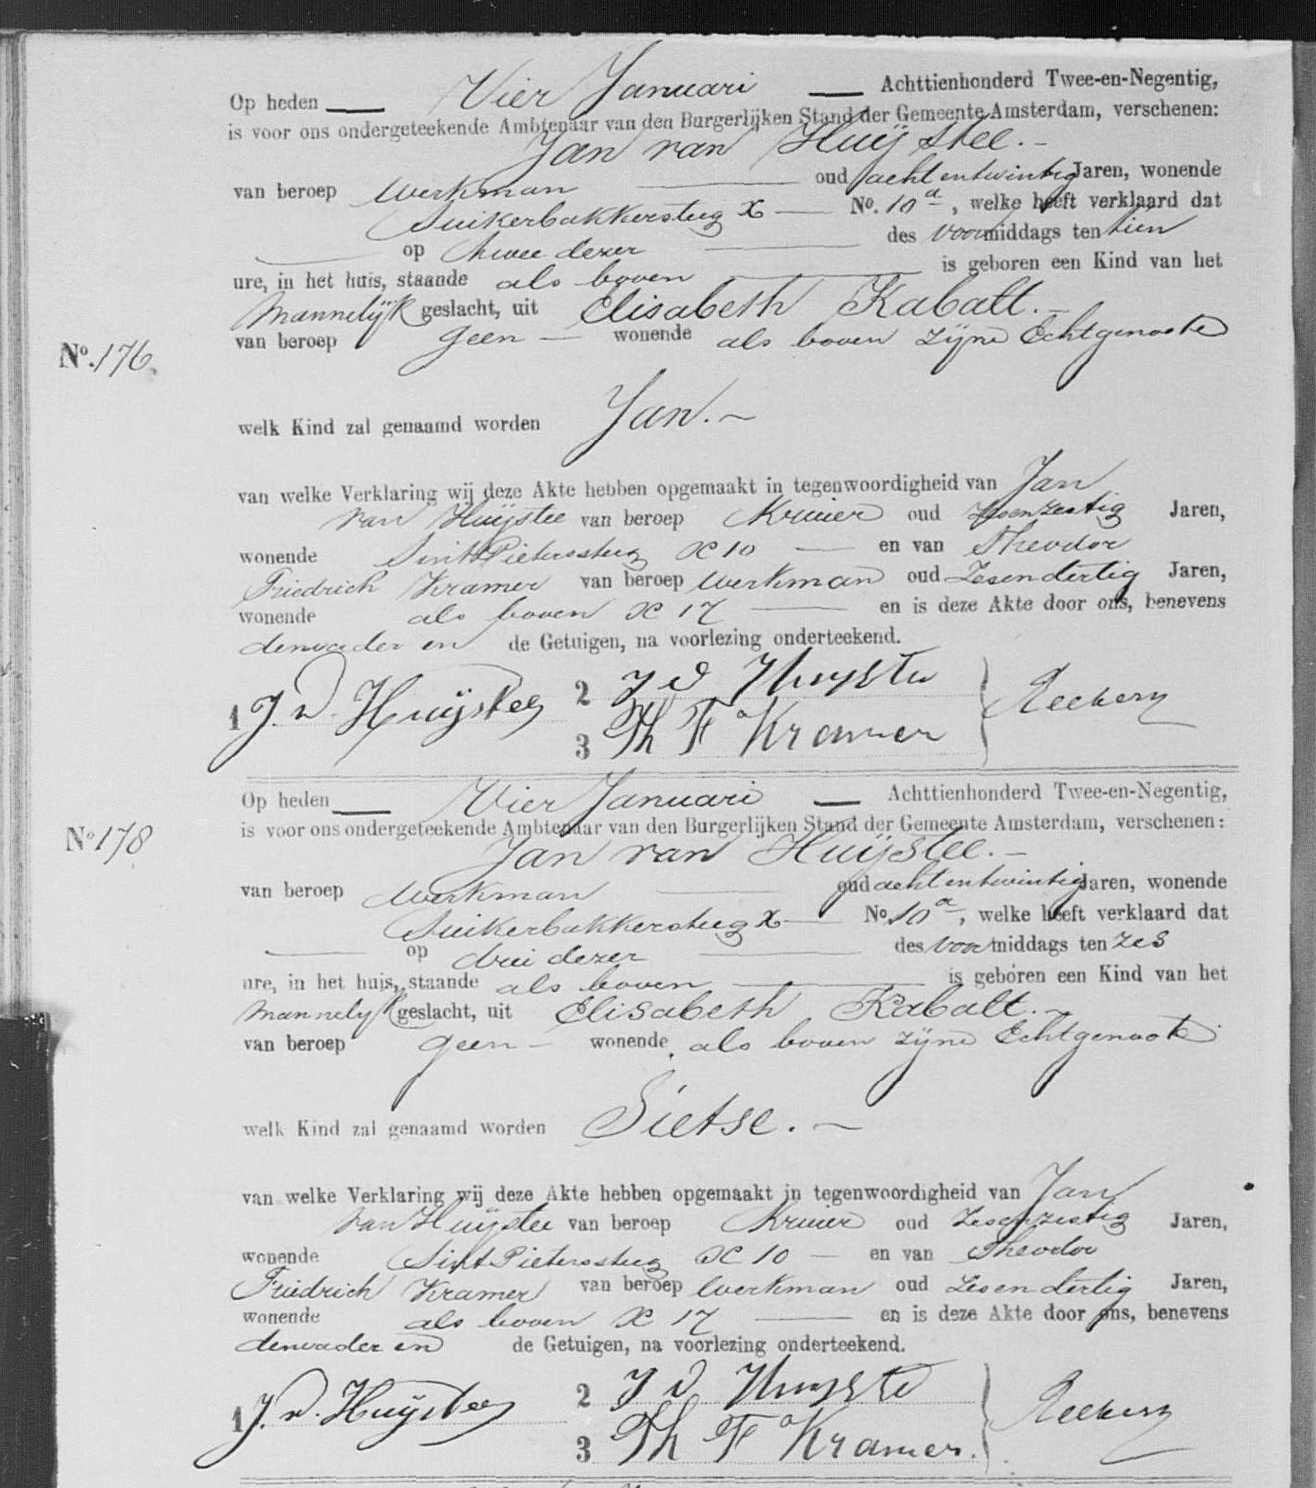 Op heden Vier Januari Achttienhonderd Twee-en-Negentig,
is voor ons ondergeteekende Ambtenaar van den Burgerlijken Stand der Gemeente Amsterdam, verschenen:
Jan van Huijstee.
van beroep Werkman oud achtentwintig Jaren, wonende
Suikerbakkersteeg X No. 10 a, welke heeft verklaard dat
op twee dezer des voormiddags ten tien
ure, in het huis, staande als boven is geboren een Kind van het
Mannelijk geslacht, uit Elisabeth Kabalt.
van beroep geen wonende als boven zijne Echtgenoote
No. 176.
welk Kind zal genaamd worden Jan.
van welke Verklaring wij deze Akte hebben opgemaakt in tegenwoordigheid van Jan
van Huijstee van beroep Kruier oud Zesenzestig Jaren,
wonende Sint Pieterssteeg 10 en van Theodor
Friedrich Kramer van beroep Werkman oud Zesendertig Jaren,
wonende als boven 17 en is deze Akte door ons, benevens
den vader en de Getuigen, na voorlezing onderteekend.
1 J. v. Huijstee 2 J v Huijstee
3 Th F Kramer
Op heden Vier Januari Achttienhonderd Twee-en-Negentig,
is voor ons ondergeteekende Ambtenaar van den Burgerlijken Stand der Gemeente Amsterdam, verschenen:
No 178
Jan van Huijstee.
van beroep Werkman oud achtentwintig Jaren, wonende
Suikerbakkersteeg X No. 10 a, welke heeft verklaard dat
op drie dezer des voormiddags ten zes
ure, in het huis, staande als boven is geboren een Kind van het
Mannelijk geslacht, uit Elisabeth Kabalt.
van beroep geen wonende als boven zijne Echtgenoote
welk Kind zal genaamd worden Sietse.
van welke Verklaring wij deze Akte hebben opgemaakt in tegenwoordigheid van Jan
van Huijstee van beroep Kruier oud Zesenzestig Jaren,
wonende Sint Pieterssteeg 10 en van Theodor
Friedrich Kramer van beroep Werkman oud Zesendertig Jaren,
wonende als boven 17 en is deze Akte door ons, benevens
den vader en de Getuigen, na voorlezing onderteekend.
1 J. v. Huijstee 2 J v Huijstee
3 Th F Kramer.